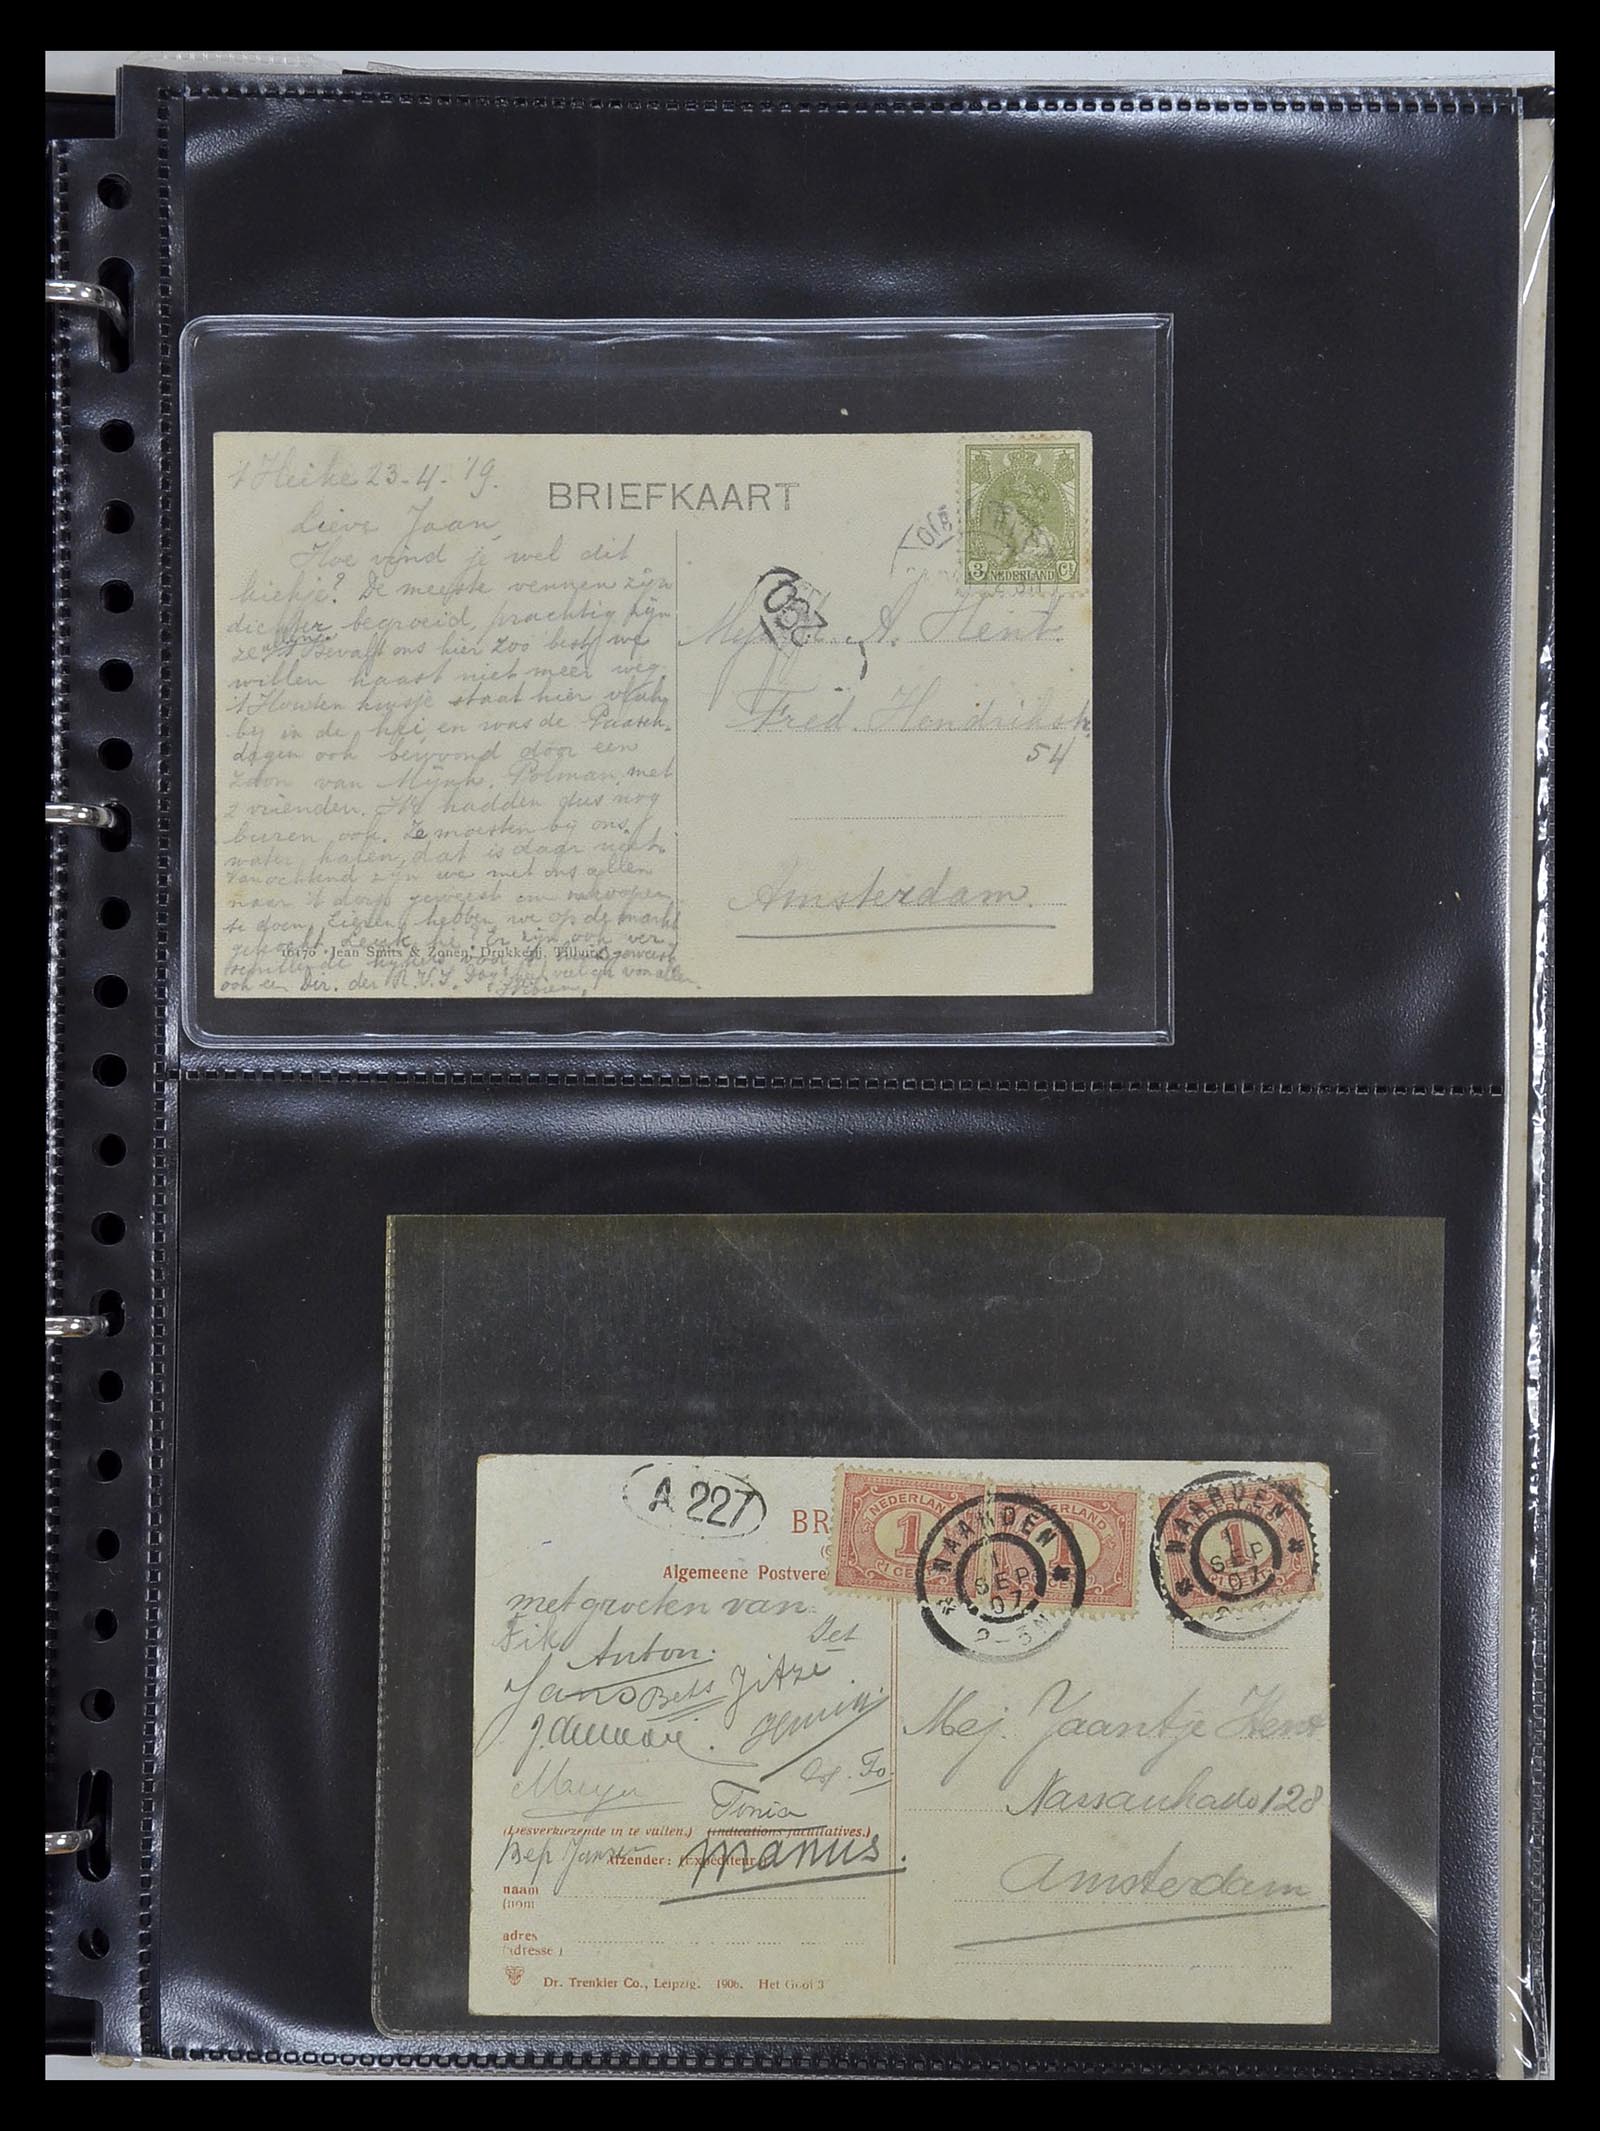 't Heike 23-4-'19.
BRIEFKAART
Lieve Jaan,
Hoe vind je wel dit
kiekje? De meeste vennen zijn
dichter begroeid, prachtig zijn
ze. 't Bevalt ons hier zoo best, we
willen haast niet meer weg.
't Houten huisje staat hier vlak
bij in de hei en was de Paasch-
dagen ook bewoond door een
zoon van Mijnh. Polman, met
2 vrienden. Wij hadden dus nog
buren ook. Ze moesten bij ons
water halen, dat is daar niet.
Vanochtend zijn we met ons allen
naar 't dorp geweest om
te doen. hebben we op de markt
gekocht. Leuk, hè! Er zijn ook ver-
ook een Dir. der N.V.S. Dag, veel gr van allen.
16170 - Jean Smits & Zonen, Drukkerij, Tilburg
3 NEDERLAND Ct
Mej. A. Hent.
Fred. Hendrikstr.
54
Amsterdam.
A 227
BR
Algemeene Postvere
NEDERLAND
1
1 CENT
NEDERLAND
1
CENT
NEDERLAND
1
NAARDEN
1 SEP 07
2-3N
NAARDEN
1 SEP 07
met groeten van
Fik
Jet
Anton.
Jans Bets Jitze
Meyer
To.
Tonia
(Desverkiezende in te vullen.) (Indications facultatives.)
Bep Jansen
Afzender: (Expéditeur)
Manus.
naam
(nom
adres
(adresse)
Dr. Trenkler Co., Leipzig. 1906. Het Gooi 3
Mej. Jaantje Hent
Nassaukade 128
Amsterdam